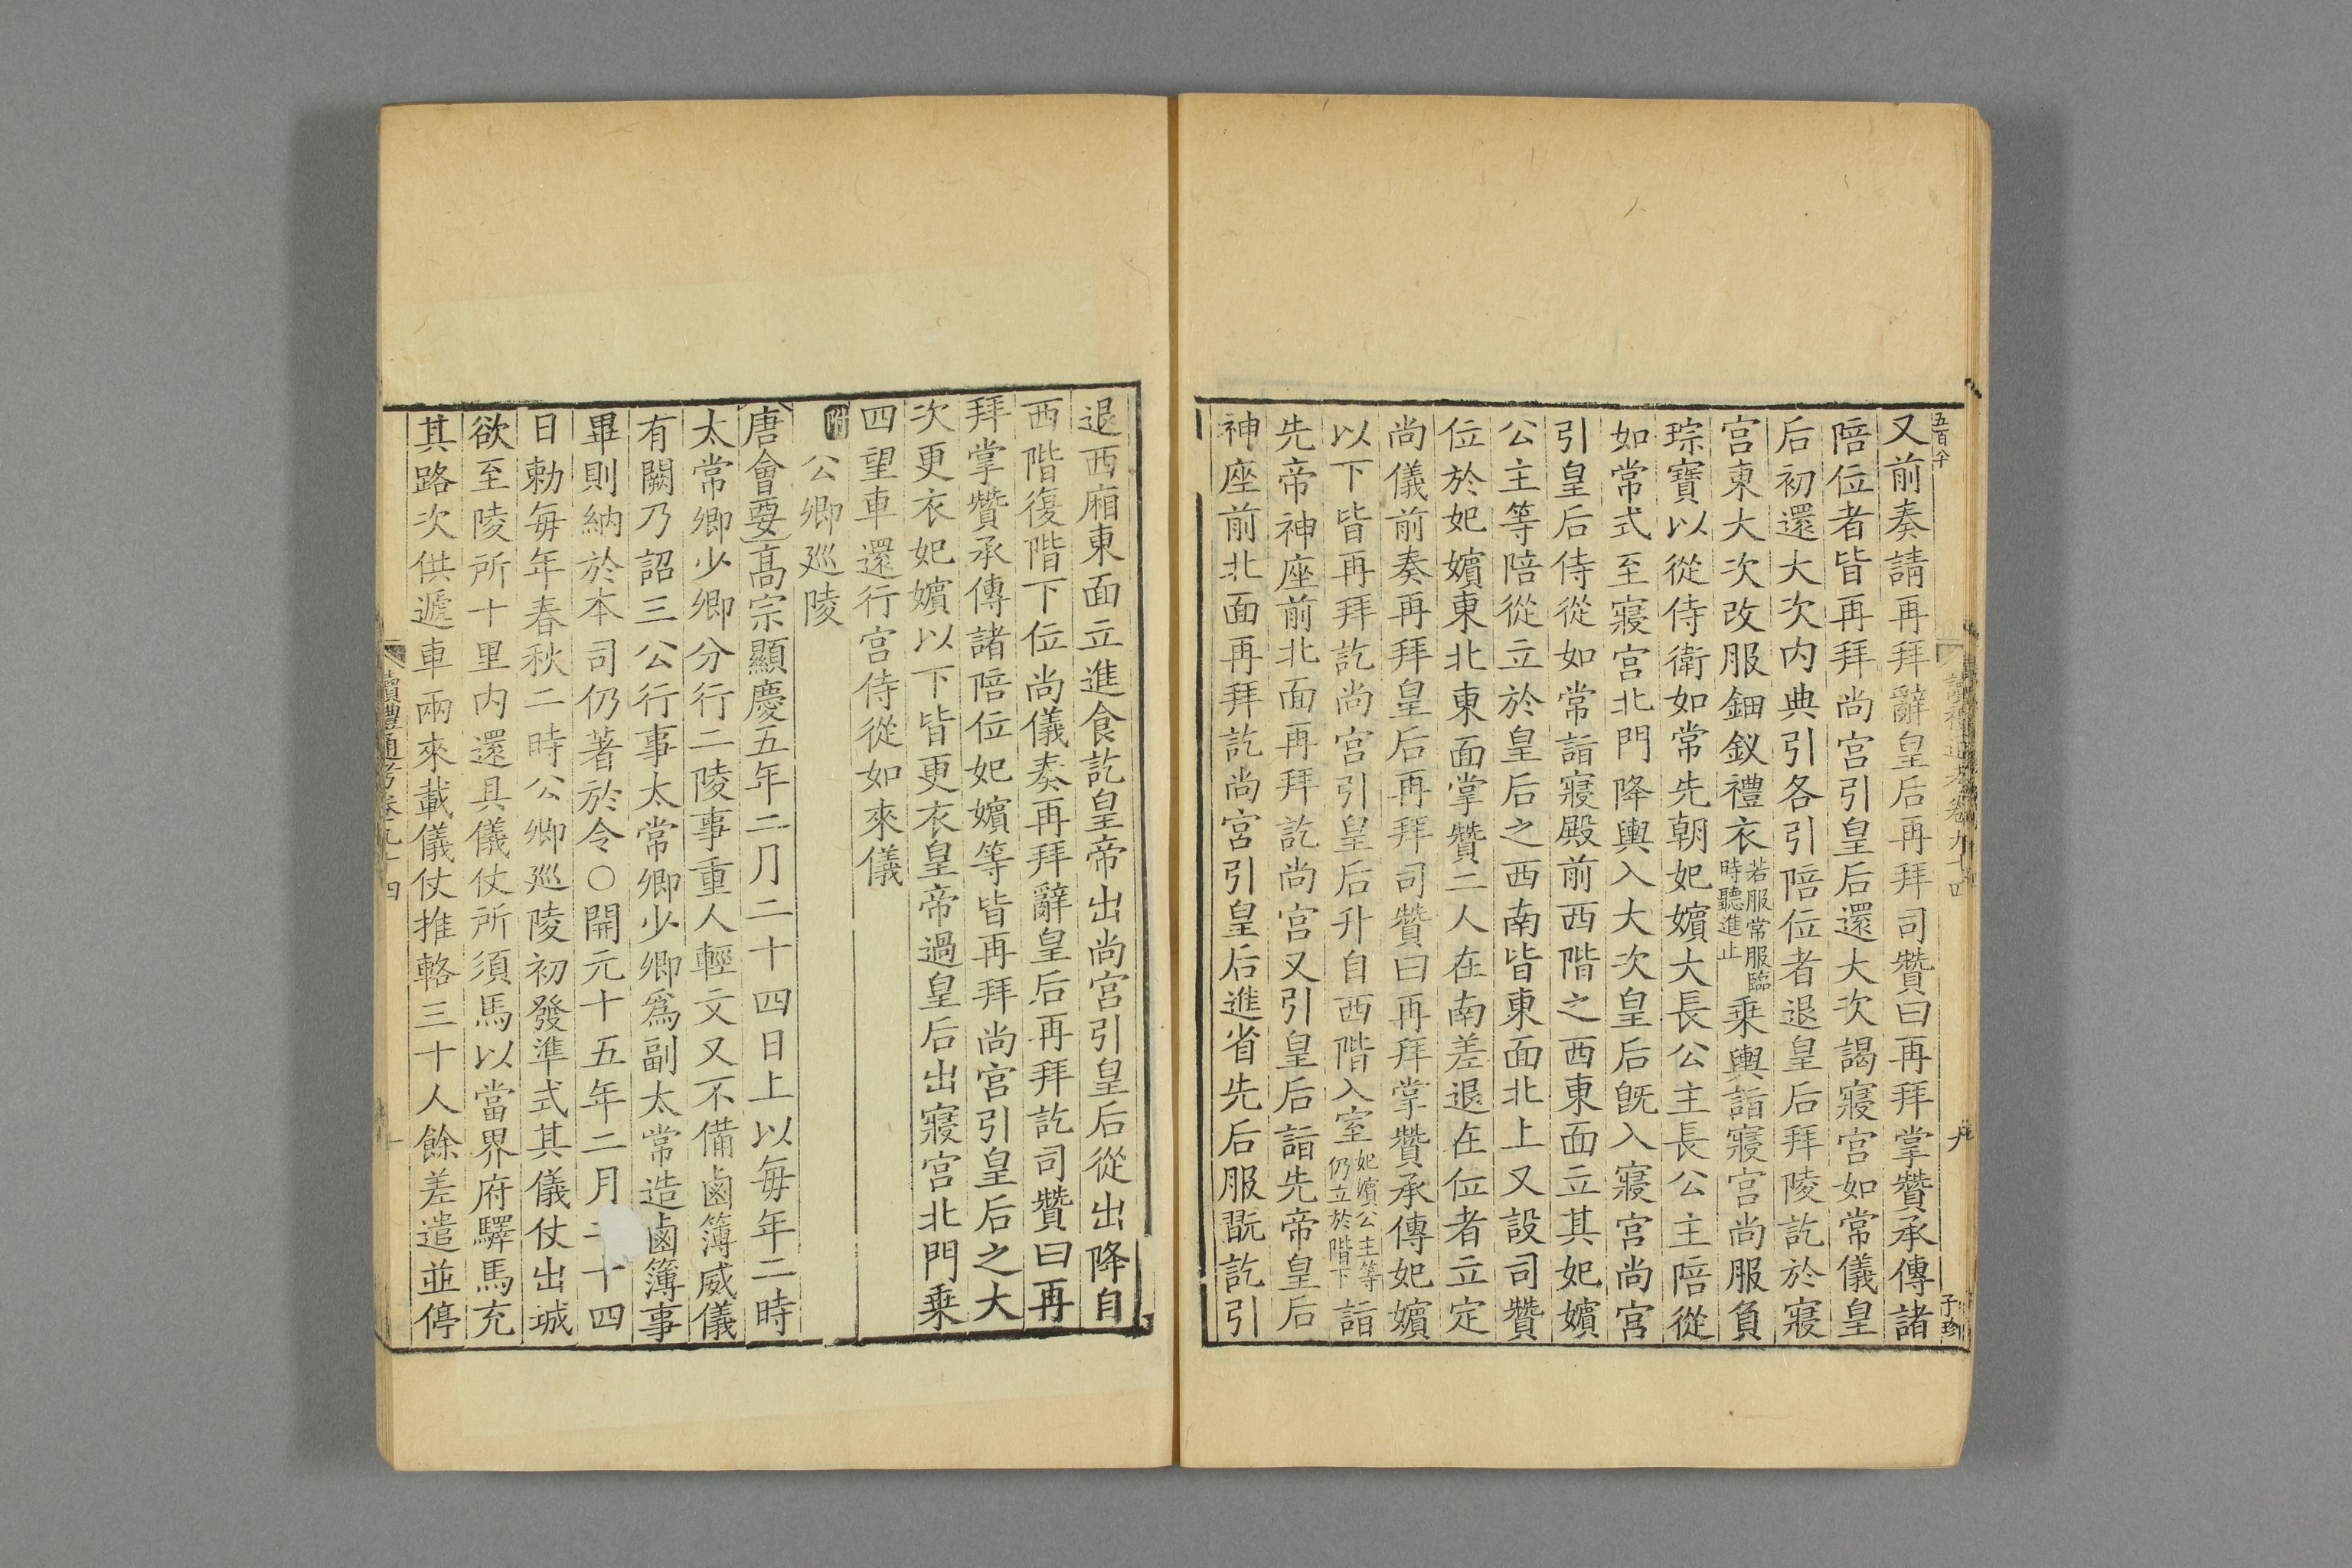 五百八十
又前奏請再拜辭皇后再拜司贊曰再拜掌贊承傳諸
陪位者皆再拜尚宫引皇后還大次謁寢宫如常儀皇
后初還大次内典引各引陪位者退皇后拜陵訖於寢
宫東大次改服鈿釵禮衣若服常服臨時聽進止乘輿詣寢宫尚服負
琮寶以從侍衛如常先朝妃嬪大長公主長公主陪從
如常式至寢宫北門降輿入大次皇后旣入寢宫尚宫
引皇后侍從如常詣寢殿前西階之西東面立其妃嬪
公主等陪從立於皇后之西南皆東面北上又設司贊
位於妃嬪東北東面掌贊二人在南差退在位者立定
尚儀前奏再拜皇后再拜司贊曰再拜掌贊承傳妃嬪
以下皆再拜訖尚宫引皇后升自西階入室妃嬪公主等仍立於階下詣
先帝神座前北面再拜訖尚宫又引皇后詣先帝皇后
神座前北面再拜訖尚宫引皇后進省先后服翫訖引
退西廂東面立進食訖皇帝出尚宫引皇后從出降自
西階復階下位尚儀奏再拜辭皇后再拜訖司贊曰再
拜掌贊承傳諸陪位妃嬪等皆再拜尚宫引皇后之大
次更衣妃嬪以下皆更衣皇帝過皇后出寢宫北門乘
四望車還行宫侍從如來儀
附公卿巡陵
唐會要高宗顯慶五年二月二十四日上以每年二時
太常卿少卿分行二陵事重人輕文又不備鹵簿威儀
有闕乃詔三公行事太常卿少卿爲副太常造鹵簿事
畢則納於本司仍著於令○開元十五年二月十四
日勅每年春秋二時公卿巡陵初發準式其儀仗出城
欲至陵所十里内還具儀仗所須馬以當界府驛馬充
其路次供遞車兩來載儀仗推輅三十人餘差遣並停
讀禮通考卷九十四